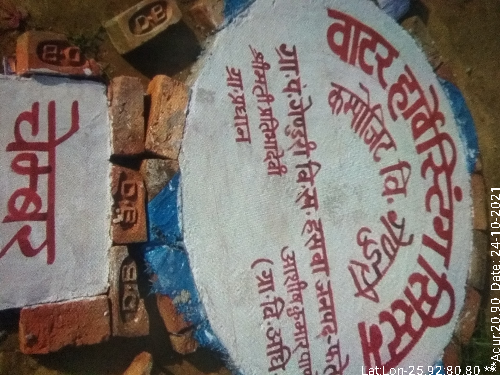 वाटर हार्वेस्टिंग सिस्टम
कम्पोजिट वि. गेण्डुरी
ग्रा.पं. गेण्डुरी वि.स. हसवा जनपद-फते
श्रीमती प्रतिमा देवी
ग्रा. प्रधान
आशीष कुमार
(ग्रा.वि.अधि
चेम्बर
Lat Lon-25.92:80.80 **
Asur20.90 Date: 24-10-2021